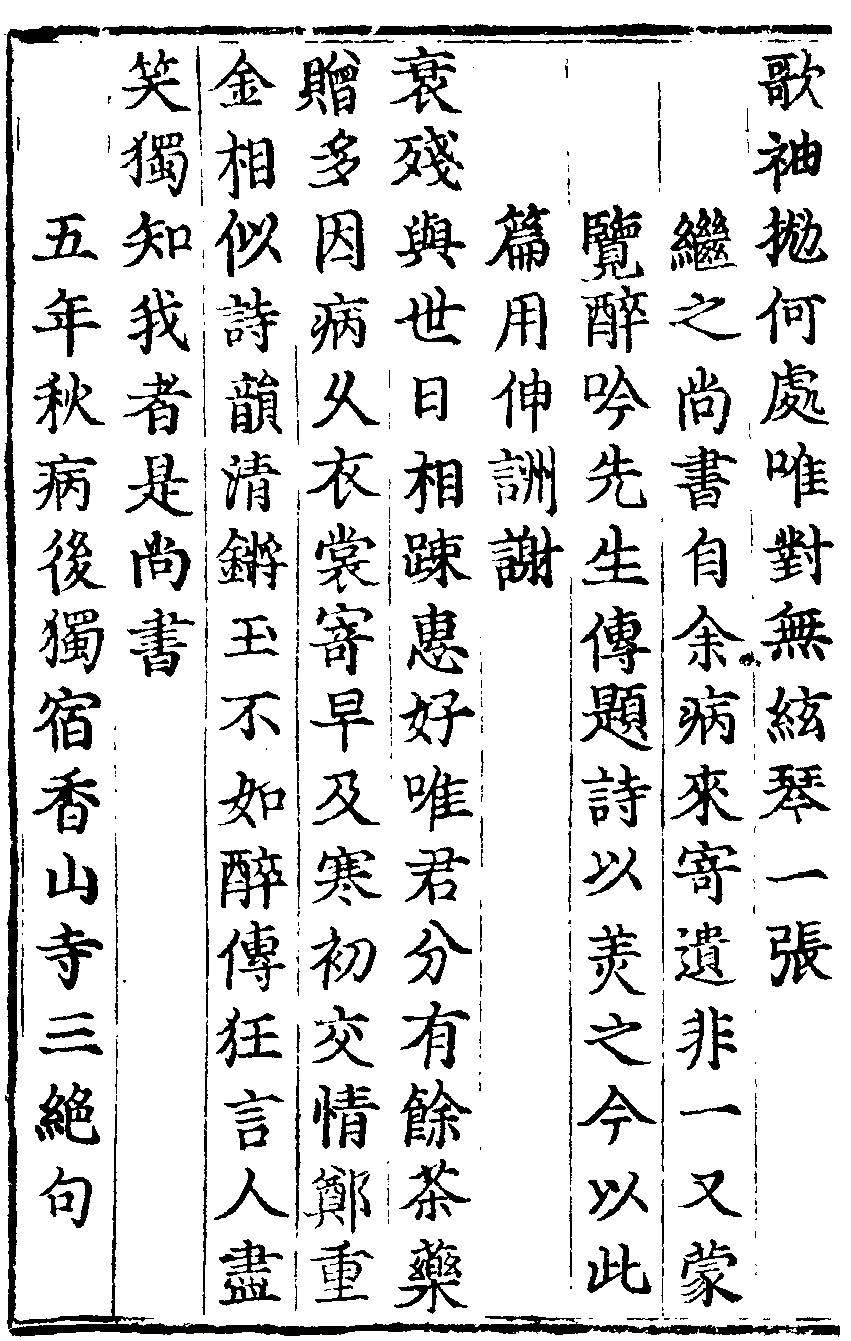 歌袖抛何處唯對無絃琴一張
繼之尚書自余病來寄遺非一又蒙
覽醉吟先生傳題詩以羙之今以此
篇用伸詶謝
衰殘與世日相踈惠好唯君分有餘茶藥
贈多因病乆衣裳寄早及寒初交情鄭重
金相似詩韻清鏘玉不如醉傳狂言人盡
笑獨知我者是尚書
五年秋病後獨宿香山寺三絕句